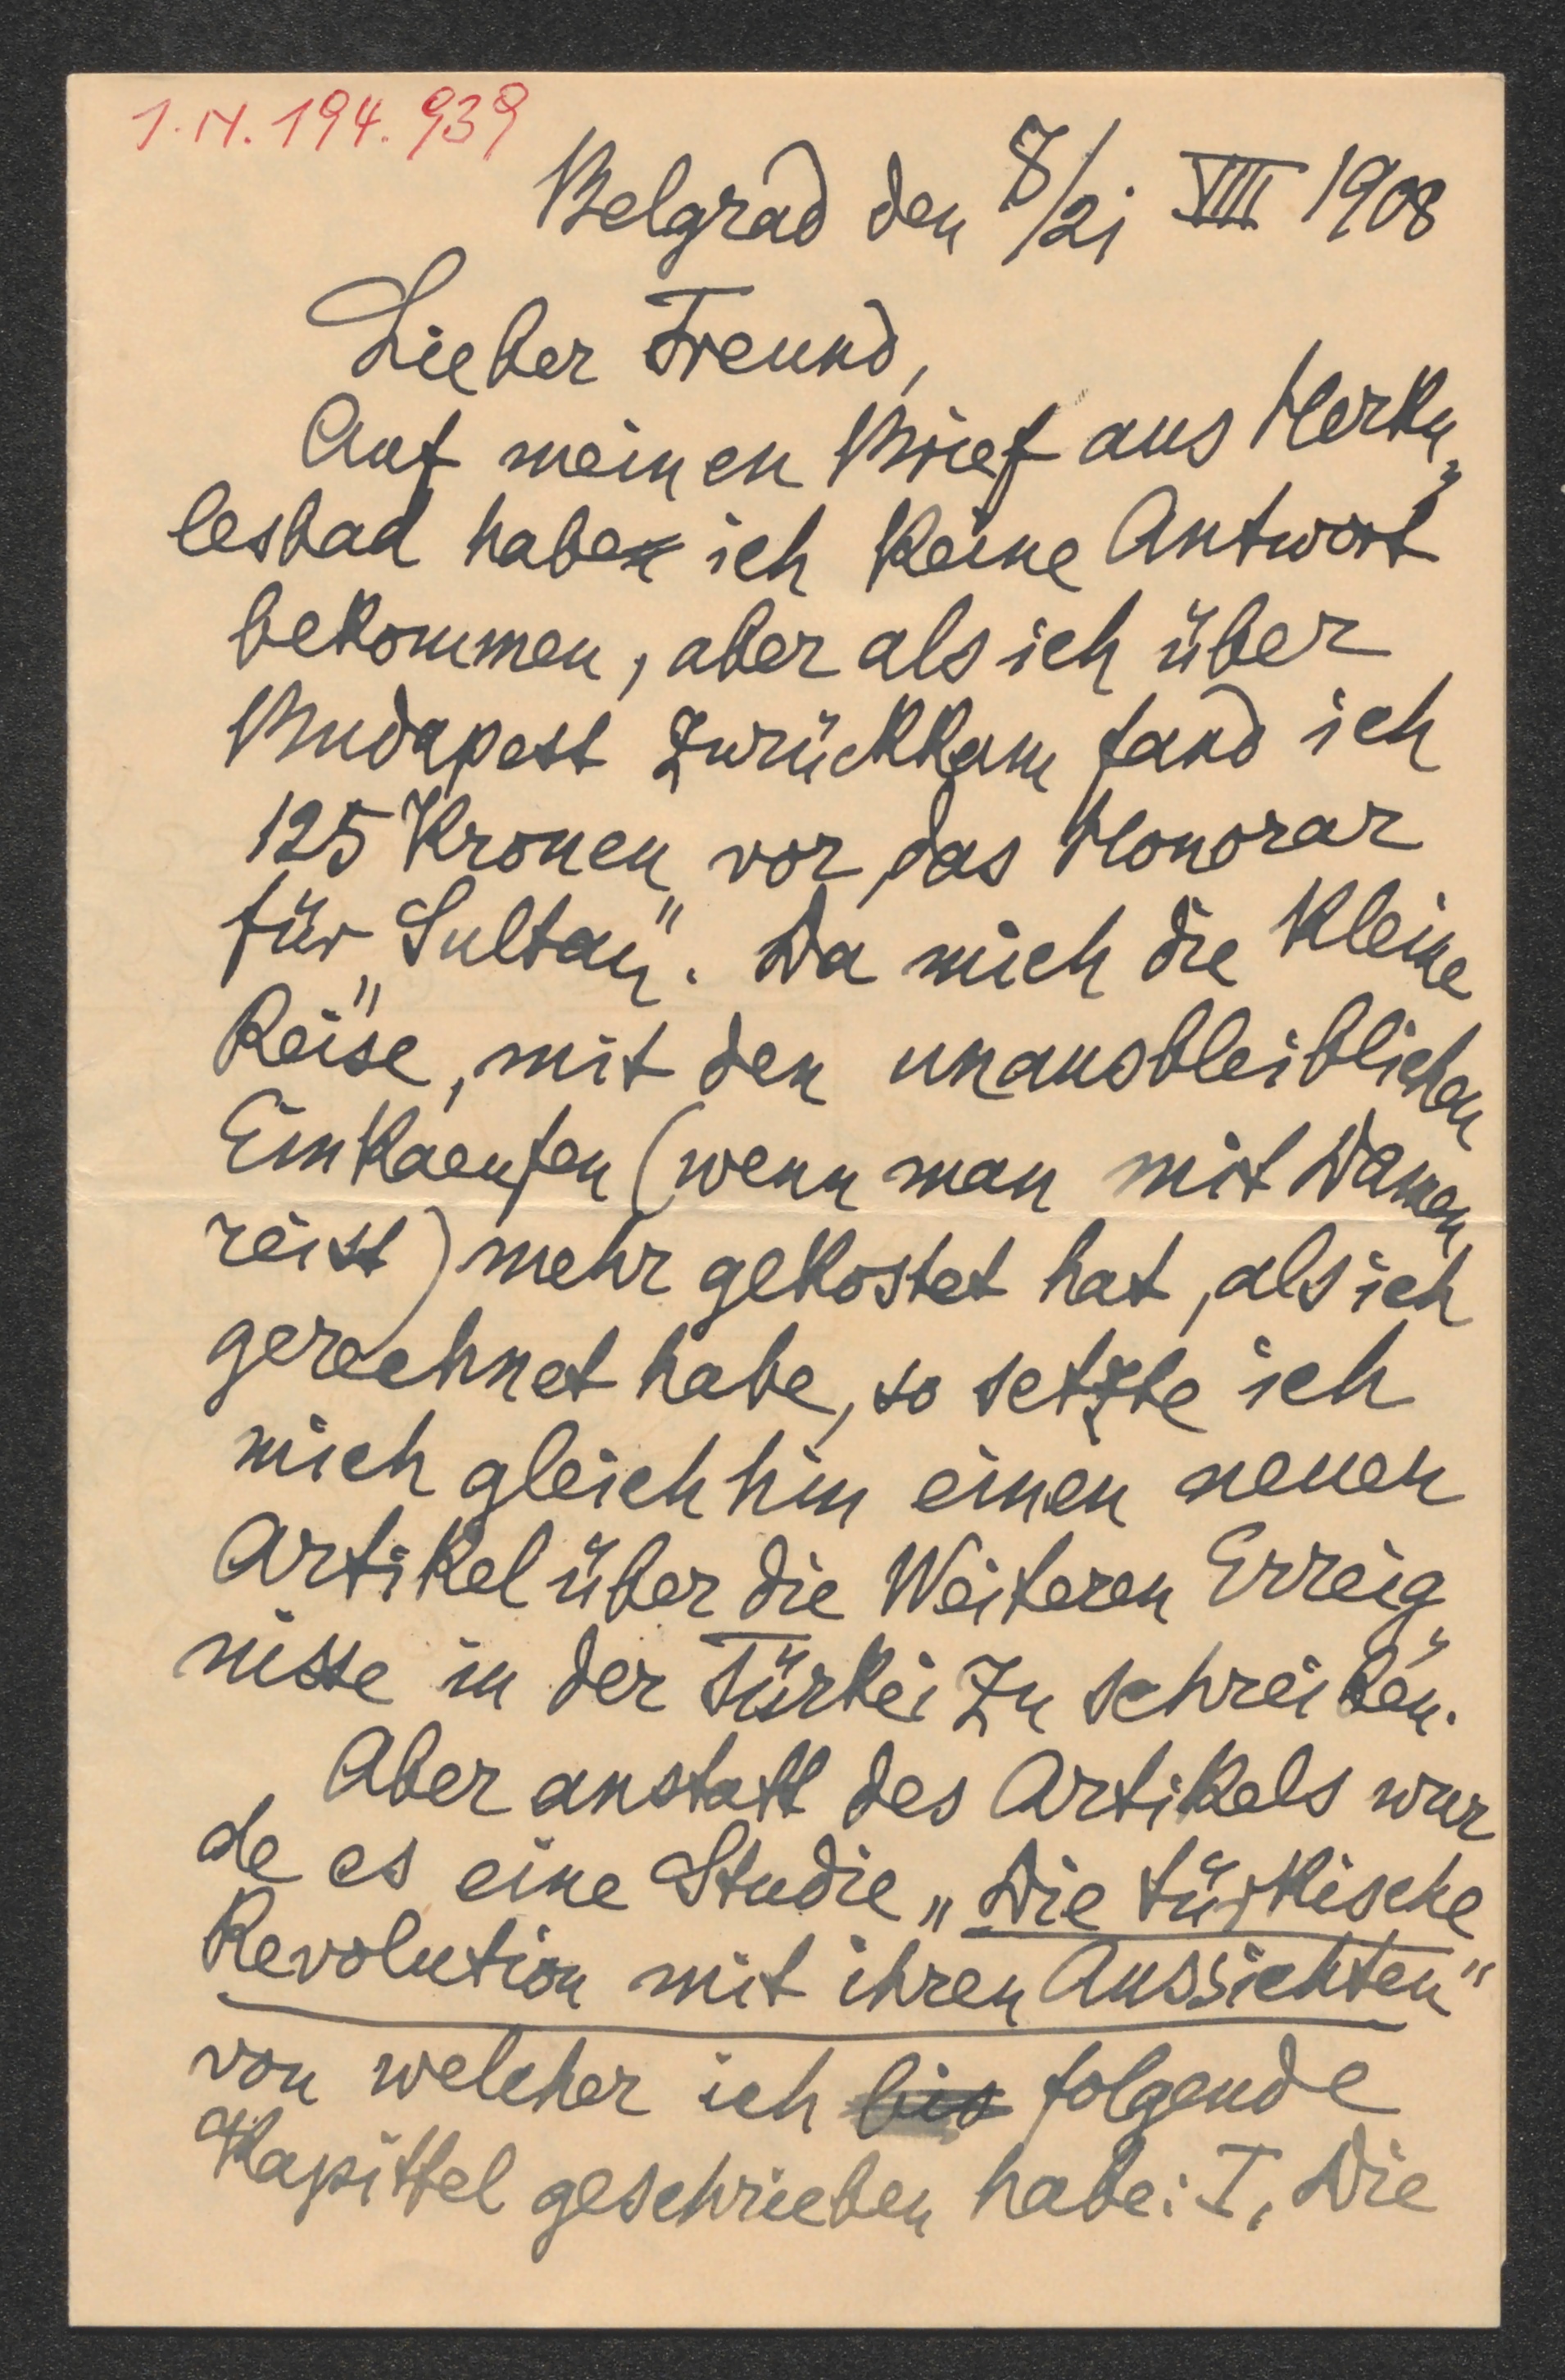 I.N. 194.939
Belgrad den 8/21 VIII 1908
Lieber Freund,
Auf meinen Brief aus Herku„
lesbad haben ich keine Antwort
bekommen, aber als ich über
Budapest zurückkam fand ich
125 Kronen vor, das Honorar
für „Sultan". Da mich die kleine
Reise, mit den unausbleiblichen
Einkaeufen (wenn man mit Damen
reist) mehr gekostet hat, als ich
gerechnet habe, so setzte ich
mich gleich hin einen neuen
Artikel über die Weiteren Erreig„
nisse in der Türkei zu schreiben.
Aber anstatt des Artikels wur
de es eine Studie „Die türkische
Revolution mit ihren Aussichten"
von welcher ich bis folgende
Kapittel geschrieben habe: I, Die